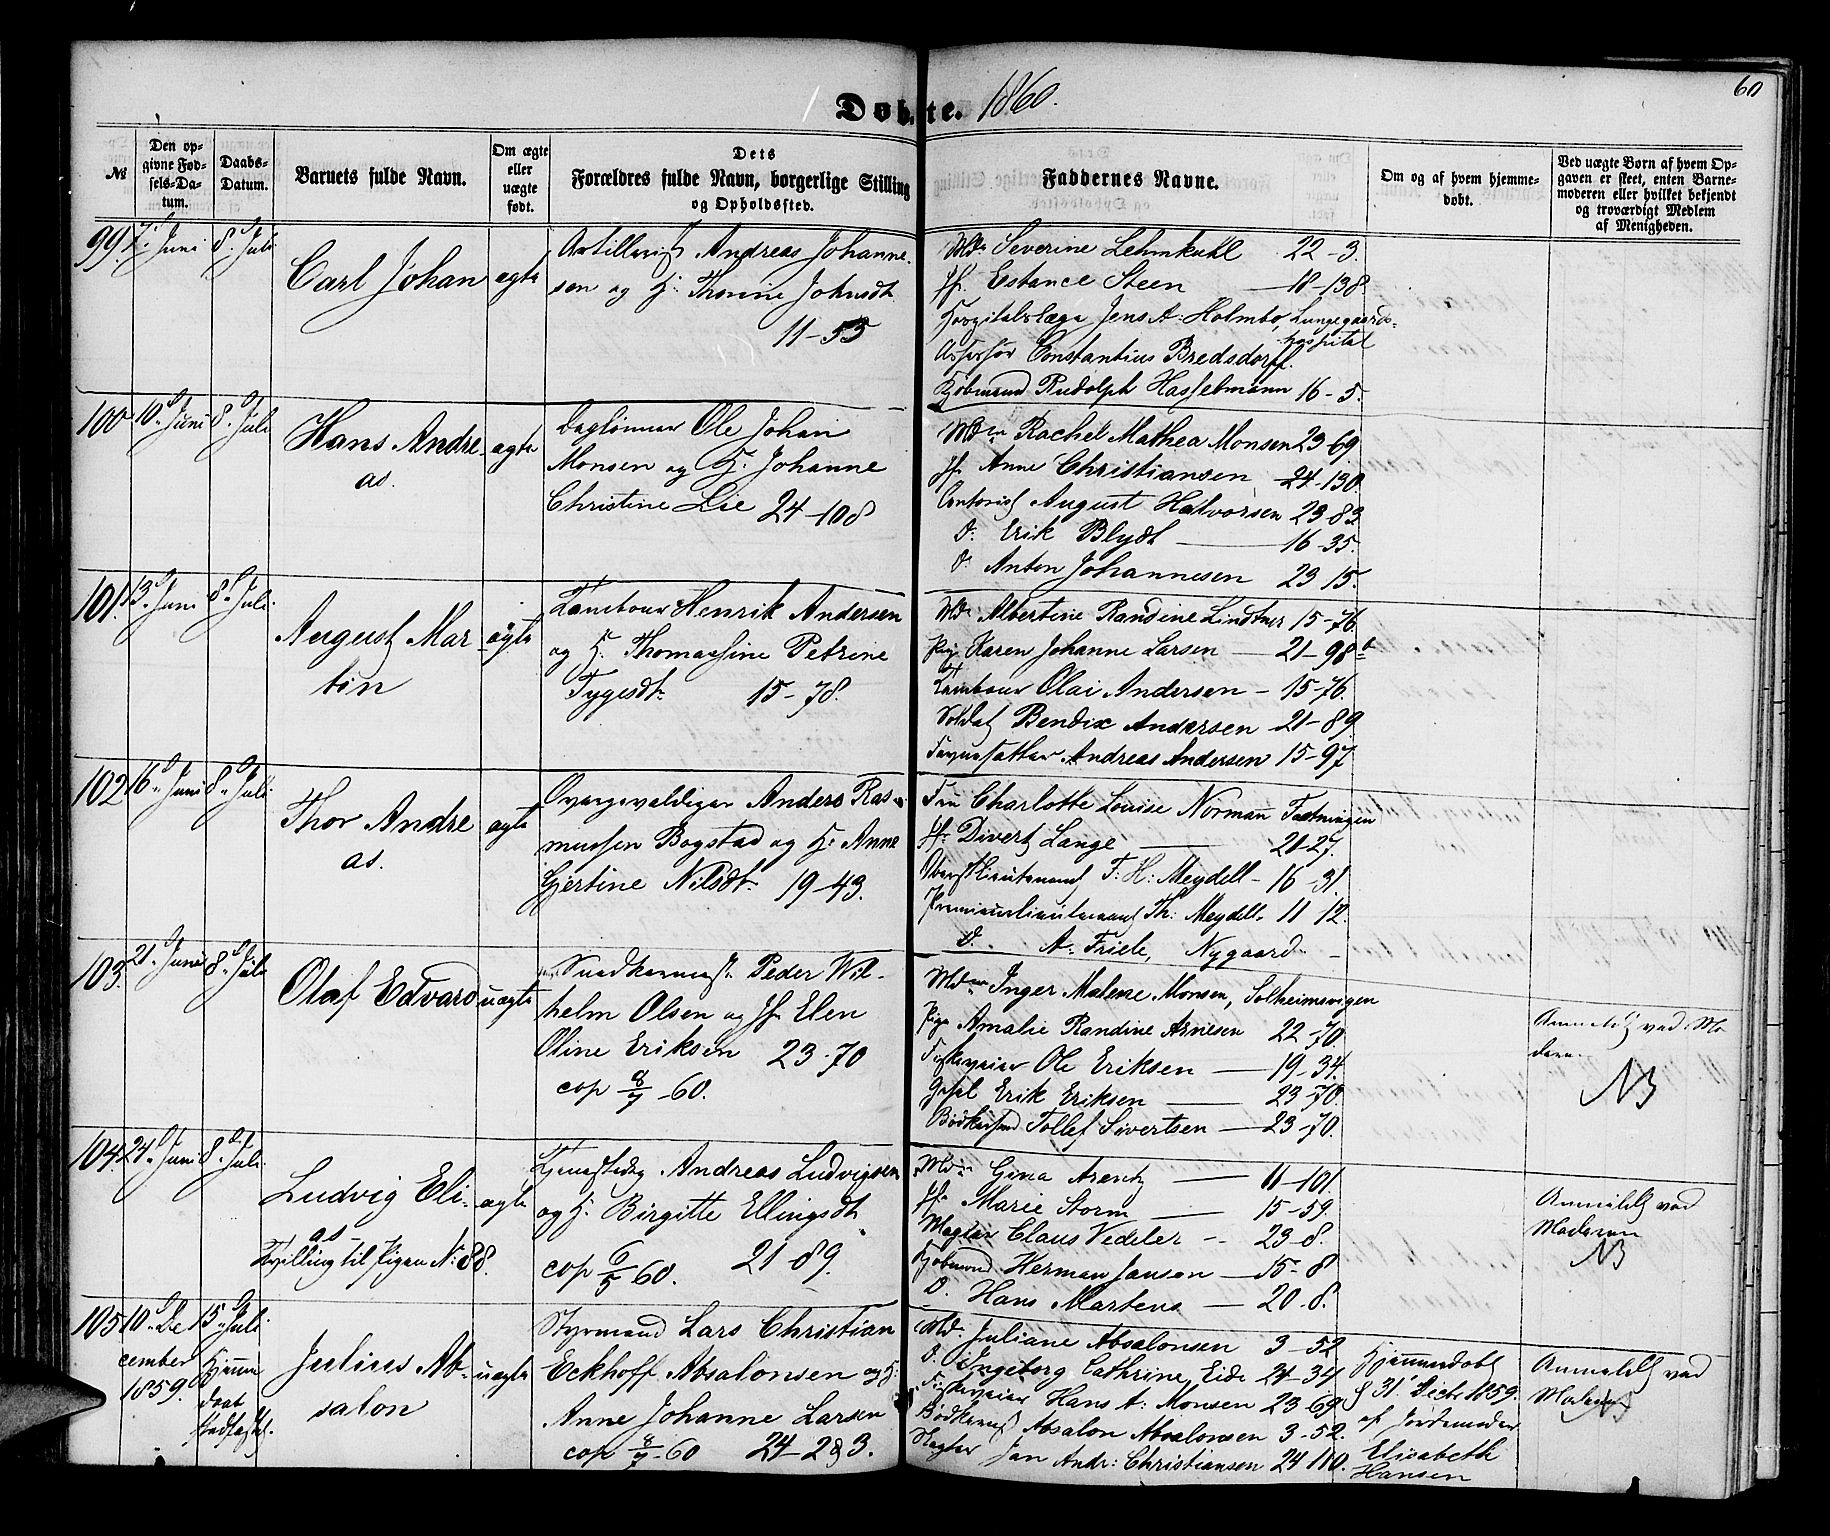 Døbte. 1860.
60
№
Den op-
givne Fød-
sels-Da-
tum.
Daabs-
Datum.
Barnets fulde Navn.
Om ægte
eller
uægte
født.
Dets
Forældres fulde Navn, borgerlige Stilling
og Opholdssted.
Faddernes Navne.
Om og af hvem hjemme-
døbt.
Ved uægte Børn af hvem Op-
gaven er skeet, enten Barne-
moderen eller hvilket bekjendt
og troværdigt Medlem
af Menigheden.
99. Juni 8. Juli
Carl Johan ægte
Artillerist Andreas Johanne-
sen og H: Thorine Johnsdt
11-53
Md: Severine Lehmkuhl 22-3.
Jfr. Estance Steen 18-138
Hospitalslæge Jens A: Holmbo, Lungegaards-
hospital
Assessor Constantius Bredsdorff.
Kjøbmand Rudolph Hasselmann 16-5.
100 10. Juni 8. Juli
Hans Andre-
as.
ægte
Daglønner Ole Johan
Monsen og H. Johanne
Christine Lie 24-108
Mdm Rachel Mathea Monsen 23-69
Jfr Anne Christiansen 24-130
Contorist August Halvorsen 23-83
D: Erik Blydt 16-35.
D: Anton Johannesen 23 15.
101. 13. Juni 8. Juli
August Mar-
tin
ægte
Tambour Henrik Andersen
og H. Thomassine Petrine
Tygesdt. 15-78.
Md: Albertine Randine Lindtner 15-76.
Pige Karen Johanne Larsen 21-98b
Tambour Olai Andersen 15-76.
Soldat Bendix Andersen 21-89
Andreas Andersen 15-97
102 16. Juni 8. Juli
Thor Andre
as.
ægte
Overgevaldiger Anders Ras-
mussen Bogstad og H. Anne
Gjertine Nilsdt. 19-43.
Fru Charlotte Louise Normann Fæstningen
Jfr Divert Lange 21-27.
Oberstlieutenant T: H: Meydell 16-31
Premierlieutenant Th: Meydell 11 12.
D. A. Friele, Nygaard
103. 21. Juni 8. Juli
Olaf Edvard uægte
Snedkermest. Peder Wil-
helm Olsen og Jfr Elen
Oline Eriksen 23-70
cop 8/7-60.
Mdm Inger Malene Monsen, Solheimsvigen
Pige Amalie Randine Arnesen 22-70.
Fiskeveier Ole Eriksen 19-34.
Gesel Erik Eriksen 23-70.
Bødkersvend Tollef Sivertsen 23-70.
Anmeldt ved Mo
deren.
NB
104 24. Juni 8. Juli
Ludvig Eli-
as -
Tvilling til Pigen N: 88.
ægte
Andreas Ludvigsen
og H. Birgitte Ellingsdt
cop 6/5 60. 21-89.
Md: Gina Arentz 11-101.
Jfr Marie Storm 15-59.
Mægler Claus Vedeler 23-8.
Kjøbmand Herman Jansen 15-8
D. Hans Martens 20-8.
Anmeldt ved
Moderen
NB
105 10. De
cember
1859.
15. Juli
Hjemme
daab
stadfæstet.
Julius Ab-
salon
uægte
Styrmand Lars Christian
Eckhoff Absalonsen og H.
Anne Johanne Larsen
cop 8/7-60 24-283.
Md. Juliane Absalonsen 3-52
D. Ingeborg Cathrine Eide 24-34
Fiskeveier Hans A: Monsen 23-69
Absalon Absalonsen 3-52.
Mægler Jan Andr: Christiansen 24 110.
Hjemmedøbt
d 31 Decbr 1859.
af Jordemoder
Elisabeth
Hansen
Anmeldt ved
Moderen
NB